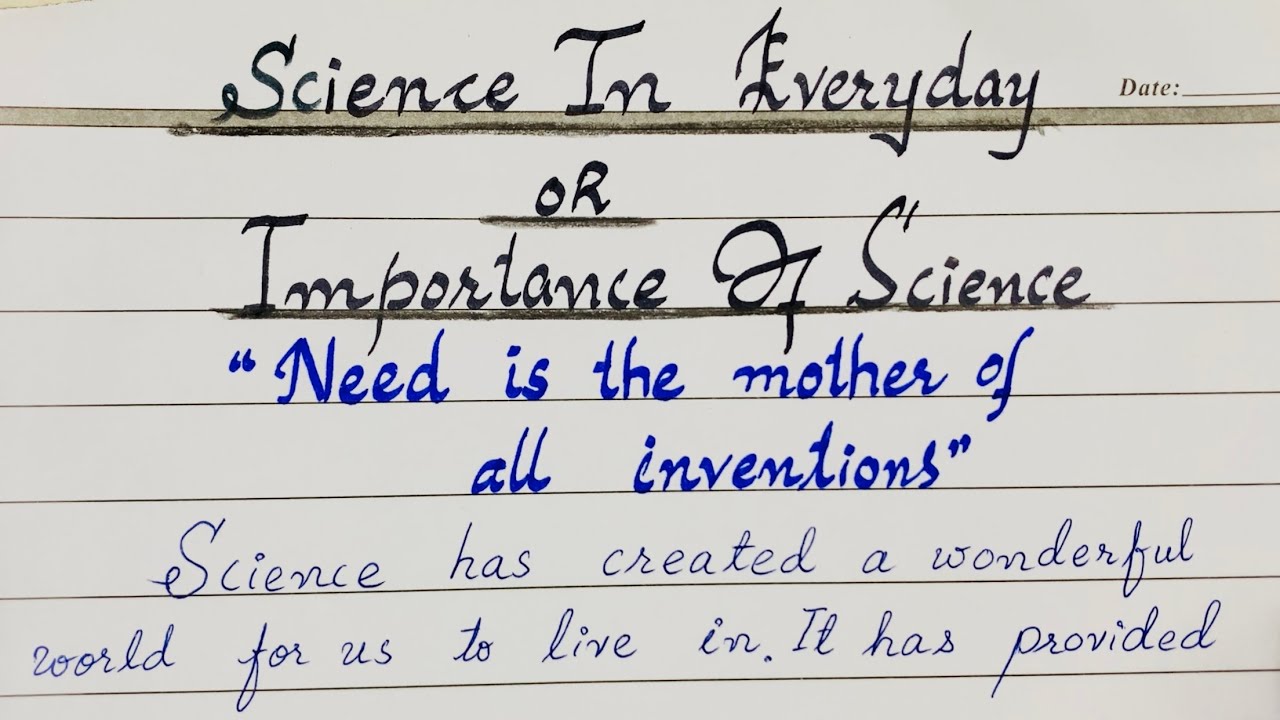 Science In Everyday
Date:
OR
Importance Of Science
"Need is the mother of
all inventions"
Science has created a wonderful
world for us to live in. It has provided